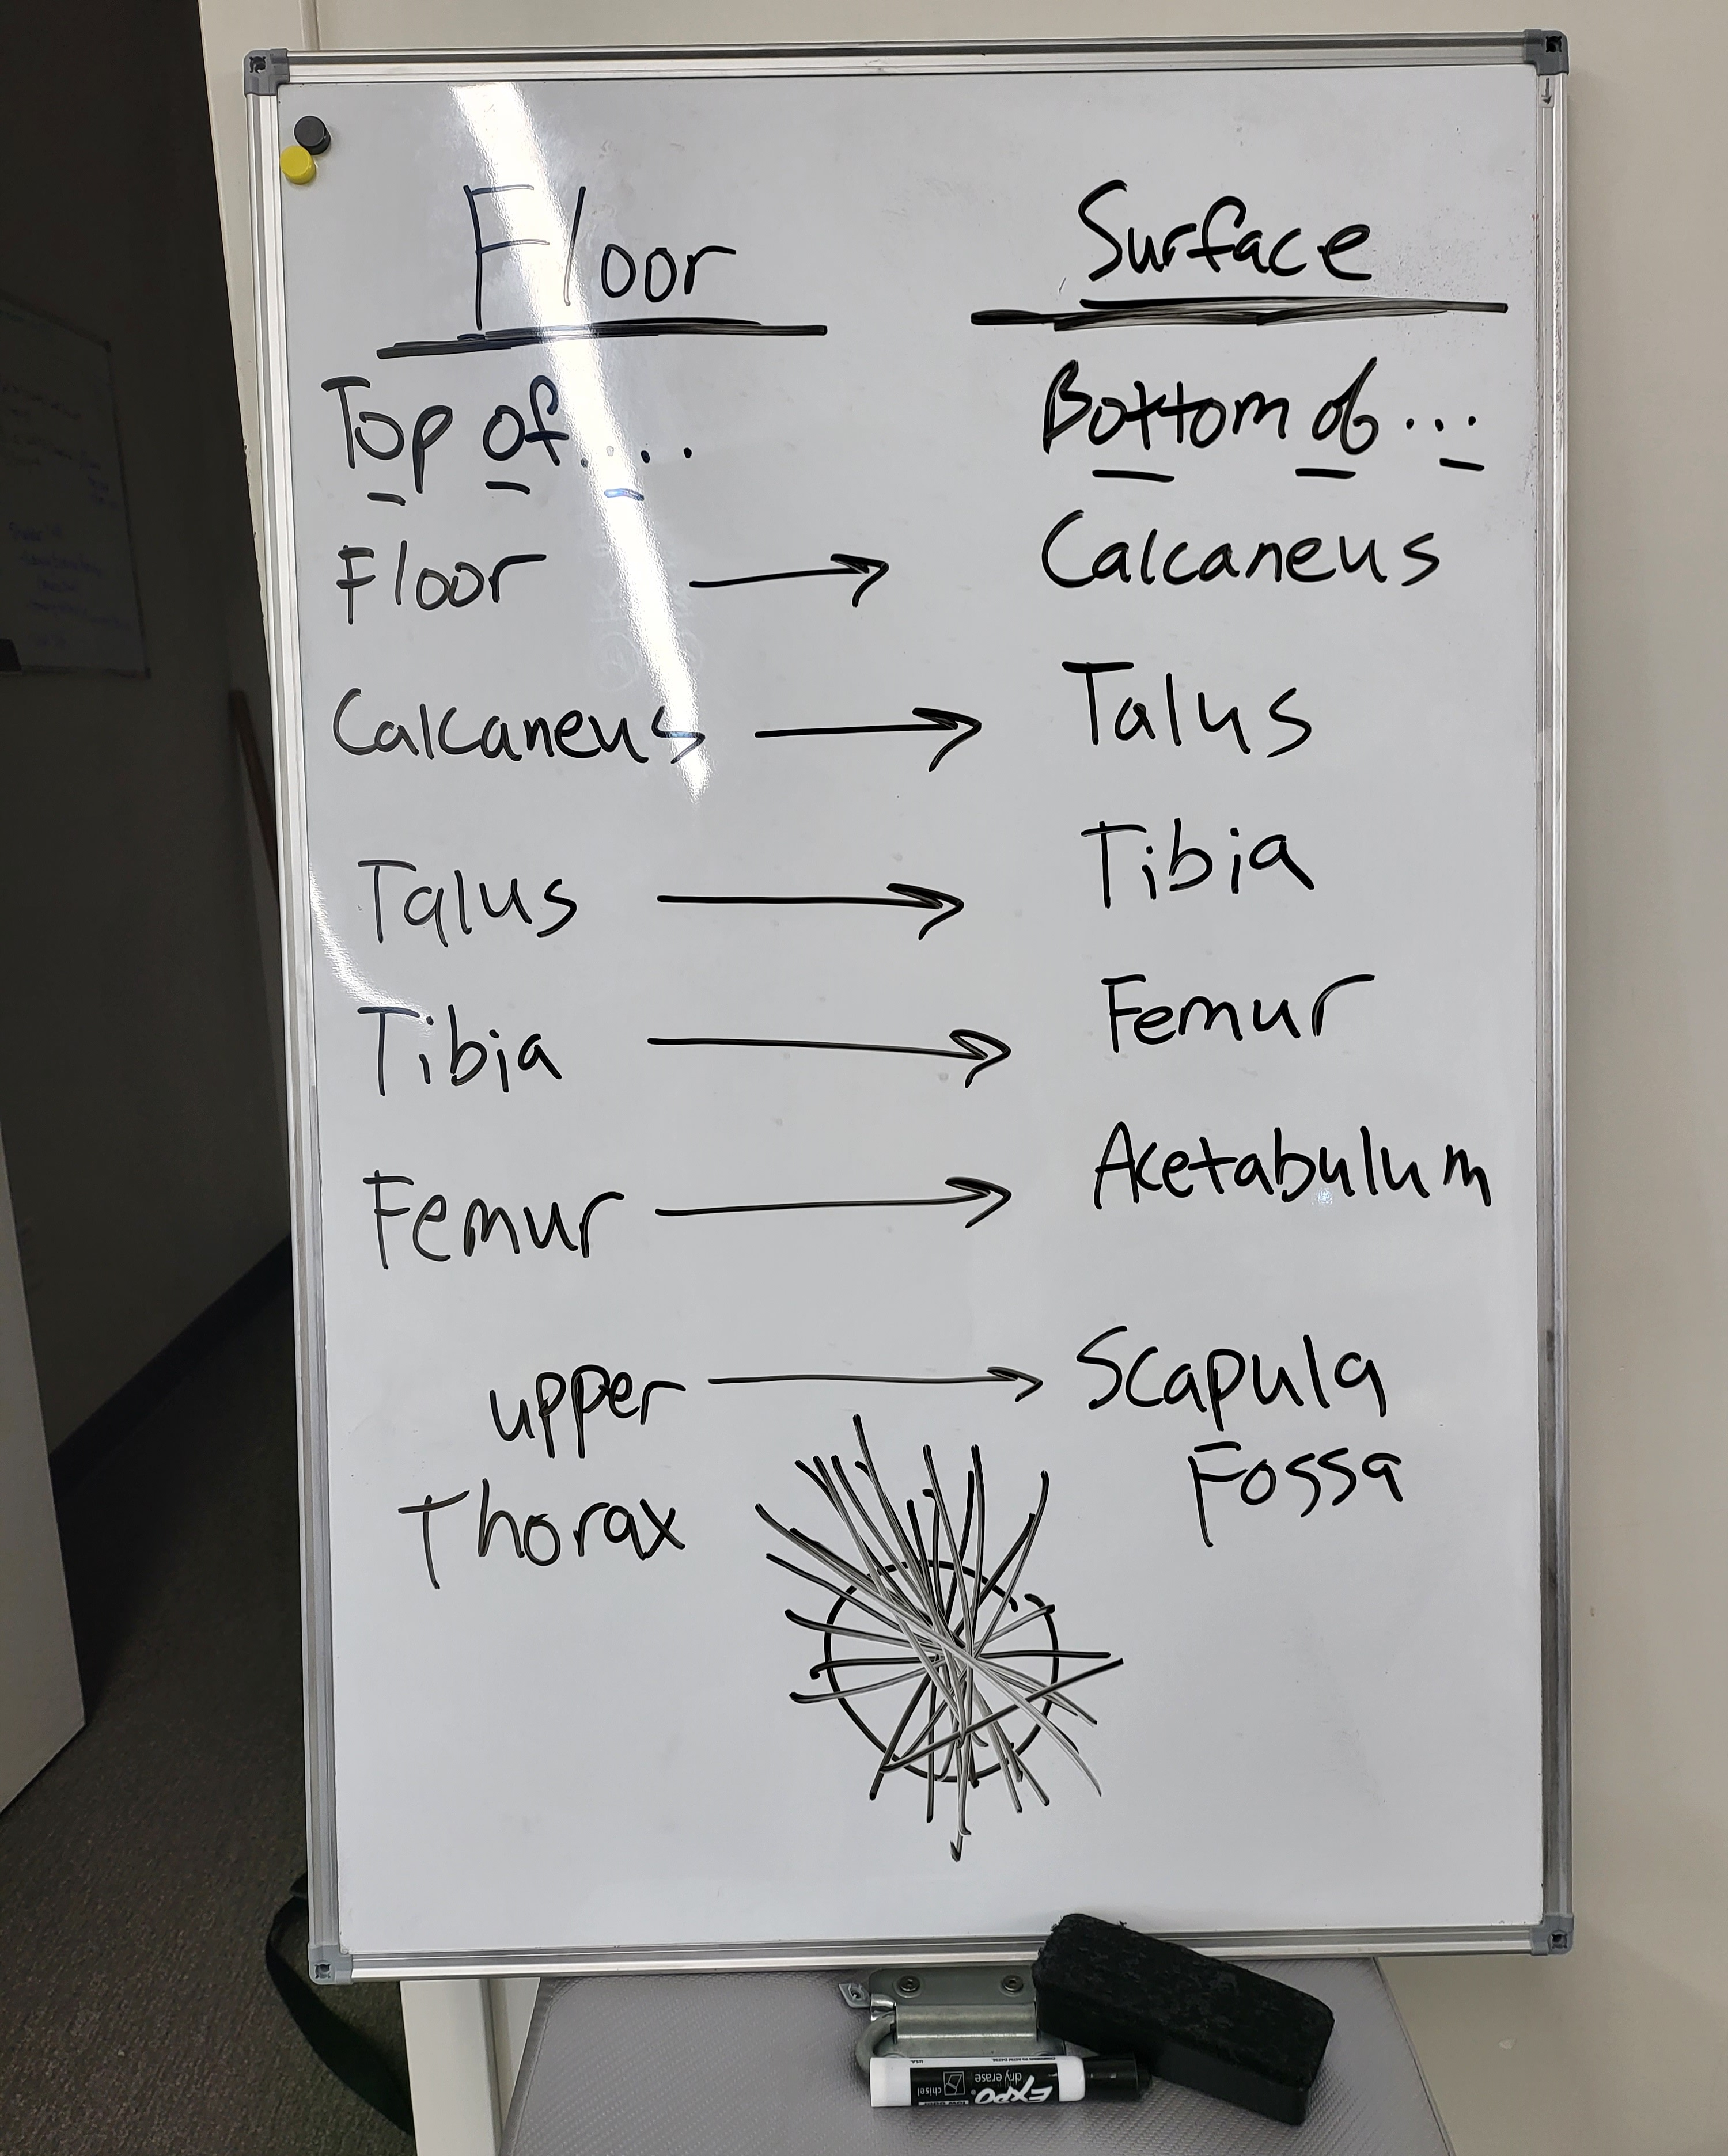 Floor Surface
Top of.... Bottom of...
Floor → Calcaneus
Calcaneus → Talus
Talus → Tibia
Tibia → Femur
Femur → Acetabulum
upper → Scapula
Thorax Fossa
EXPO
dry erase
chisel